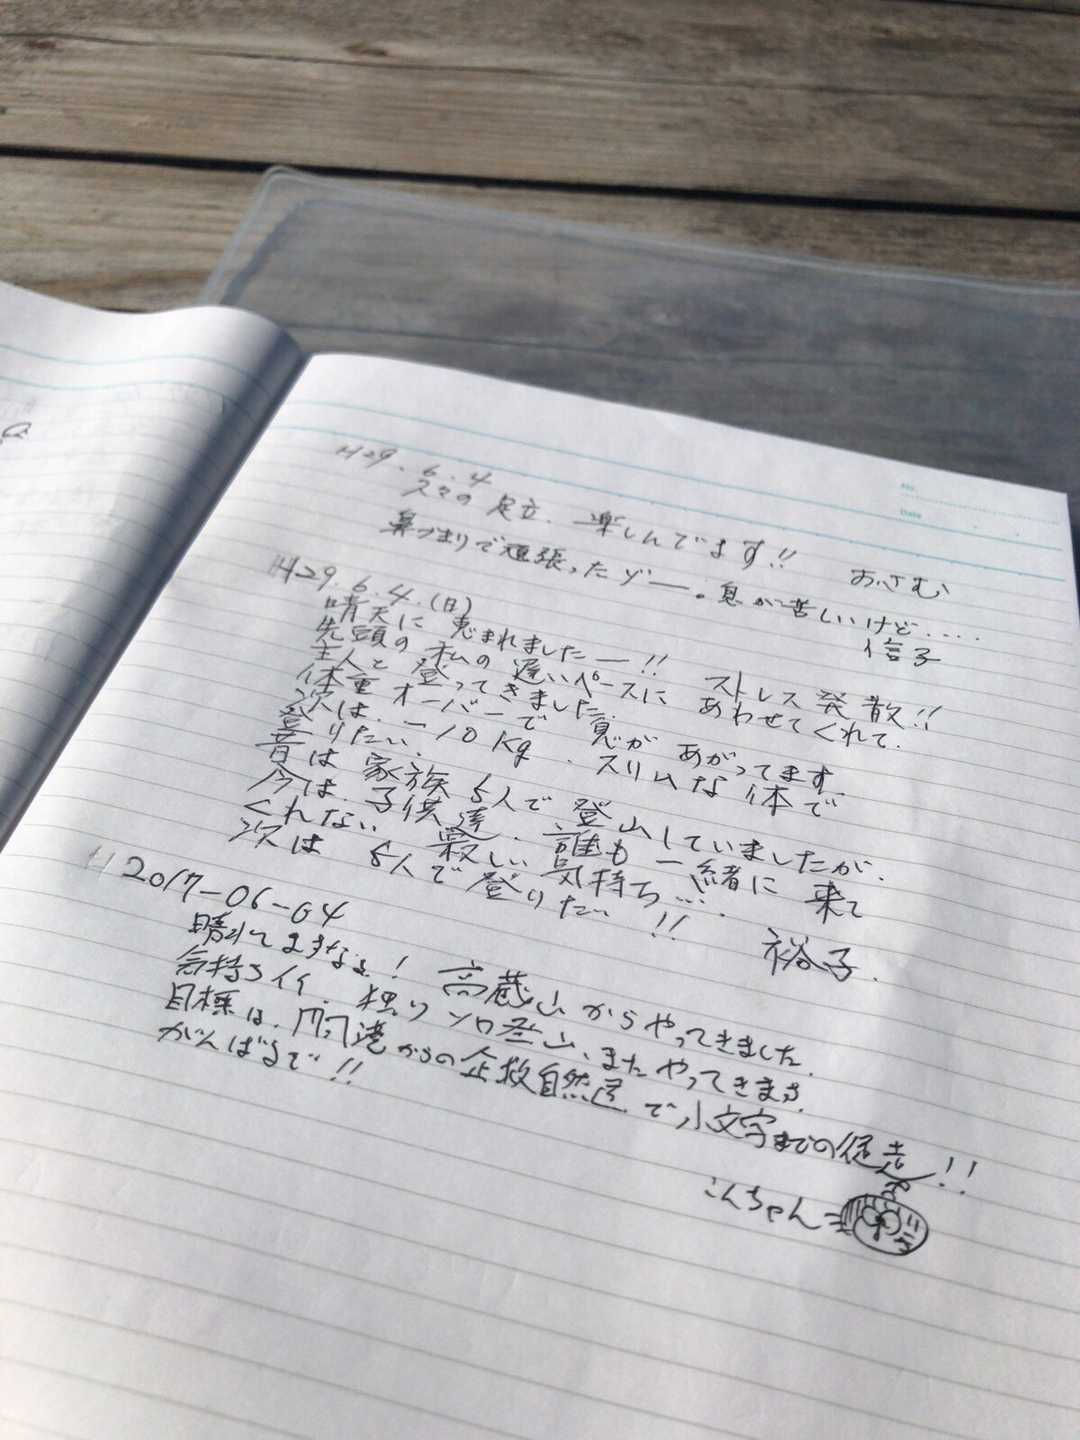 No.
Date
H29.6.4
久々の足立、楽しんでます!!
おさむ
鼻づまりで頑張ったゾー。息が苦しいけど....
信子
H29.6.4.(日)
晴天に恵まれましたー!! ストレス発散!!
先頭の私の遅いペースに あわせてくれて、
主人と登ってきました。
体重オーバーで息が あがってます。
次は、-10kg、スリムな体で
登りたい。
昔は家族5人で登山していましたが、
今は、子供達、誰も一緒に来て
くれない 寂しい気持ち...。
次は5人で登りたい!!
裕子.
2017-06-04
晴れてますなぁ! 高蔵山からやってきました.
気持ちイイ. 独りソロ登山、またやってきます.
目標は、門司港からの企救自然歩道で小文字までの縦走!!
がんばるで!!
こんちゃん